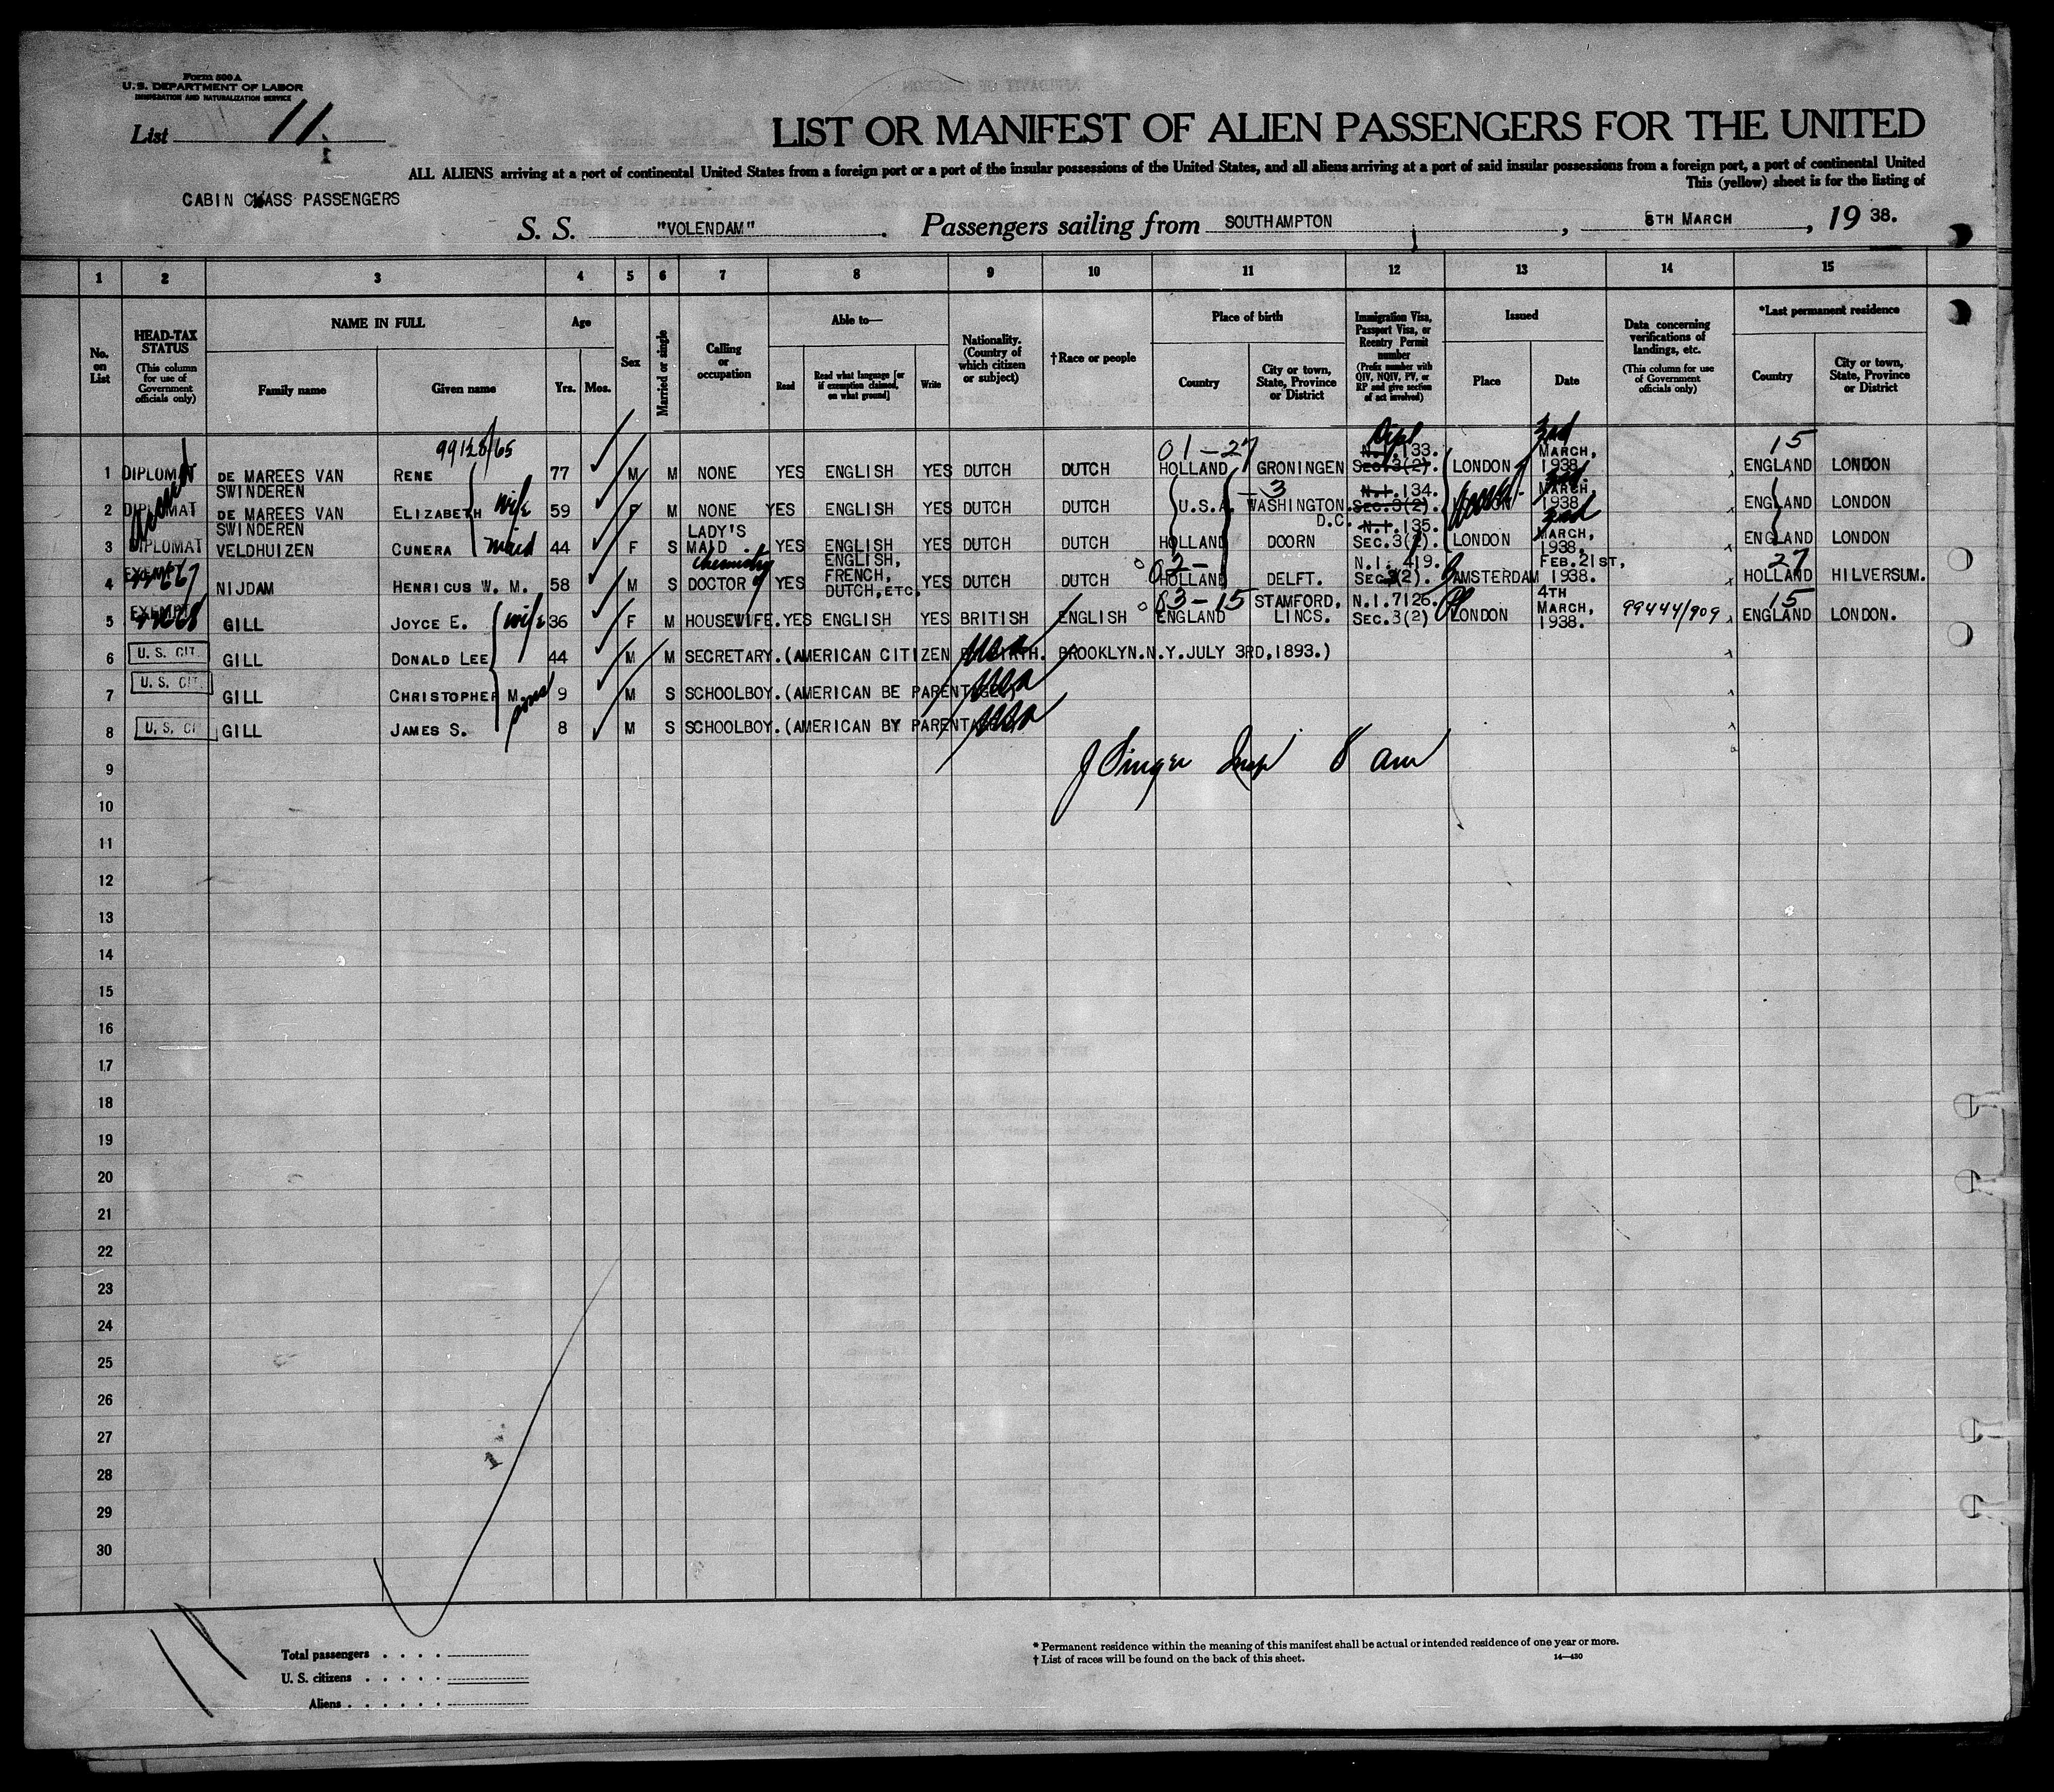 Form 500 A
U.S. DEPARTMENT OF LABOR
IMMIGRATION AND NATURALIZATION SERVICE
List 11
LIST OR MANIFEST OF ALIEN PASSENGERS FOR THE UNITED
ALL ALIENS arriving at a port of continental United States from a foreign port or a port of the insular possessions of the United States, and all aliens arriving at a port of said insular possessions from a foreign port, a port of continental United
This (yellow) sheet is for the listing of
CABIN CLASS PASSENGERS
S. S. "VOLENDAM" . Passengers sailing from SOUTHAMPTON , 8TH MARCH , 19 38.
1 2 3 4 5 6 7 8 9 10 11 12 13 14 15
No. on List
HEAD-TAX STATUS (This column for use of Government officials only)
NAME IN FULL
Family name Given name
Age
Yrs. Mos.
Sex
Married or single
Calling or occupation
Able to—
Read Read what language [or if exemption claimed, on what ground] Write
Nationality. (Country of which citizen or subject)
†Race or people
Place of birth
Country City or town, State, Province or District
Immigration Visa, Passport Visa, or Reentry Permit number (Prefix number with QIV, NQIV, PV, or RP and give section of act involved)
Issued
Place Date
Data concerning verifications of landings, etc. (This column for use of Government officials only)
*Last permanent residence
Country City or town, State, Province or District
99128/65 01-27 Dipl 3rd 15
1 DIPLOMAT DE MAREES VAN SWINDEREN RENE 77 M M NONE YES ENGLISH YES DUTCH DUTCH HOLLAND GRONINGEN N.I.133. SEC.3(2). LONDON MARCH, 1938 ENGLAND LONDON
2 DIPLOMAT DE MAREES VAN SWINDEREN ELIZABETH wife 59 F M NONE YES ENGLISH YES DUTCH DUTCH U.S.A. 3 WASHINGTON. D.C. N.I.134. SEC.3(2). 3rd MARCH, 1938 ENGLAND LONDON
3 DIPLOMAT VELDHUIZEN CUNERA maid 44 F S LADY'S MAID. YES ENGLISH YES DUTCH DUTCH HOLLAND DOORN N.I.135. SEC.3(2). LONDON 3rd MARCH, 1938. ENGLAND LONDON
4 EXEMPT NIJDAM HENRICUS W. M. 58 M S DOCTOR of Chemistry YES ENGLISH, FRENCH, DUTCH, ETC. YES DUTCH DUTCH HOLLAND DELFT. N.I. 419. SEC.3(2). AMSTERDAM FEB.21ST, 1938. 27 HOLLAND HILVERSUM.
5 EXEMPT GILL JOYCE E. wife 36 F M HOUSEWIFE. YES ENGLISH YES BRITISH ENGLISH 03-15 ENGLAND STAMFORD, LINCS. N.I.7126. SEC.3(2) LONDON 4TH MARCH, 1938. 99444/909 15 ENGLAND LONDON.
6 U. S. CIT. GILL DONALD LEE 44 M M SECRETARY. (AMERICAN CITIZEN BY BIRTH. BROOKLYN.N.Y.JULY 3RD,1893.) USA
7 U. S. CIT. GILL CHRISTOPHER M. sons 9 M S SCHOOLBOY. (AMERICAN BE PARENTAGE) USA
8 U. S. CIT GILL JAMES S. 8 M S SCHOOLBOY. (AMERICAN BY PARENTAGE) USA
9 J Singer Insp 8 am
10
11
12
13
14
15
16
17
18
19
20
21
22
23
24
25
26
27
28
29
30
Total passengers . . . .
U. S. citizens . . . . .
Aliens . . . . . .
* Permanent residence within the meaning of this manifest shall be actual or intended residence of one year or more.
† List of races will be found on the back of this sheet.
14—430